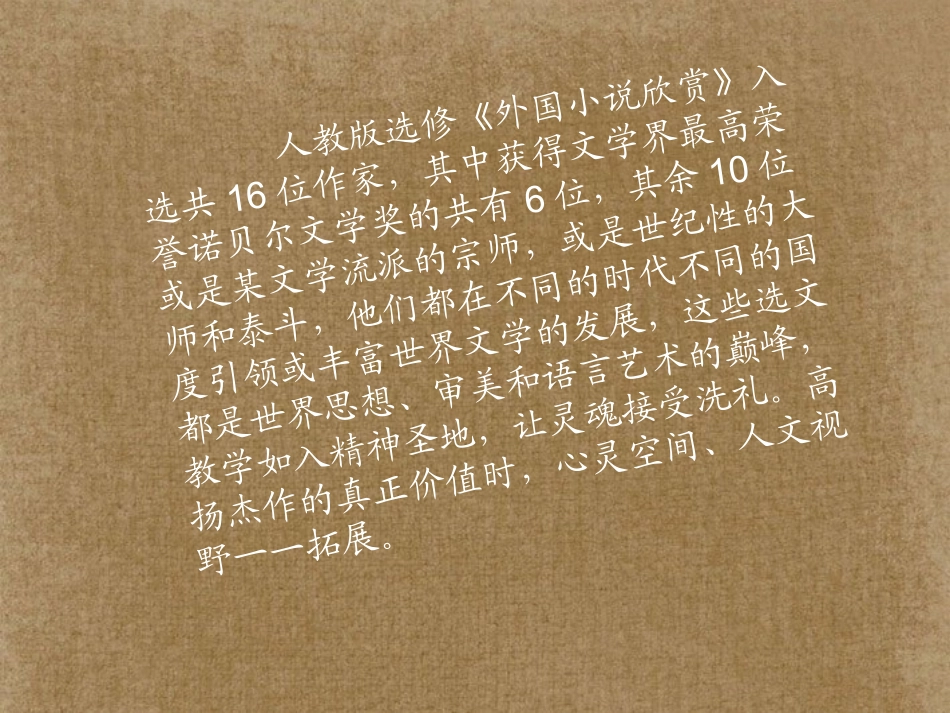 人教版选修《外国小说欣赏》入
选共 16 位作家，其中获得文学界最高荣
誉诺贝尔文学奖的共有 6 位，其余 10 位
或是某文学流派的宗师，或是世纪性的大
师和泰斗，他们都在不同的时代不同的国
度引领或丰富世界文学的发展，这些选文
都是世界思想、审美和语言艺术的巅峰，
教学如入精神圣地，让灵魂接受洗礼。高
扬杰作的真正价值时，心灵空间、人文视
野一一拓展。